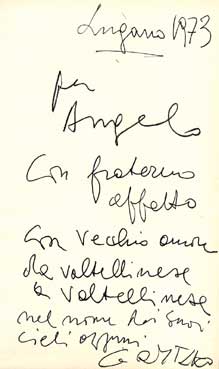 Lugano 1973
per
Angelo
Con fraterno
affetto
Con vecchio amore
da valtellinese
a valtellinese
nel nome dei suoi
cieli